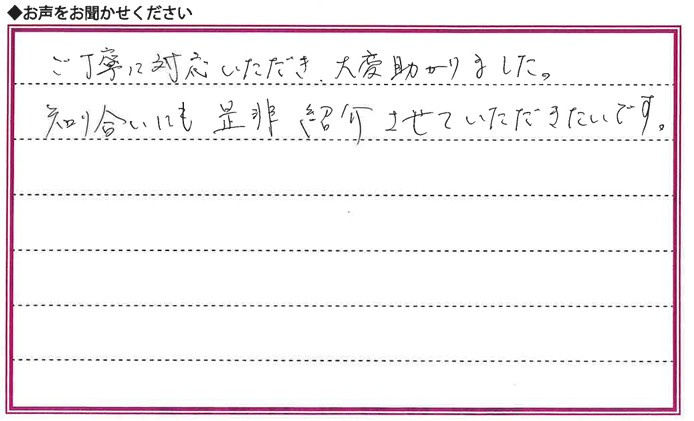 ◆お声をお聞かせください
ご丁寧に対応いただき、大変助かりました。
知り合いにも是非紹介させていただきたいです。